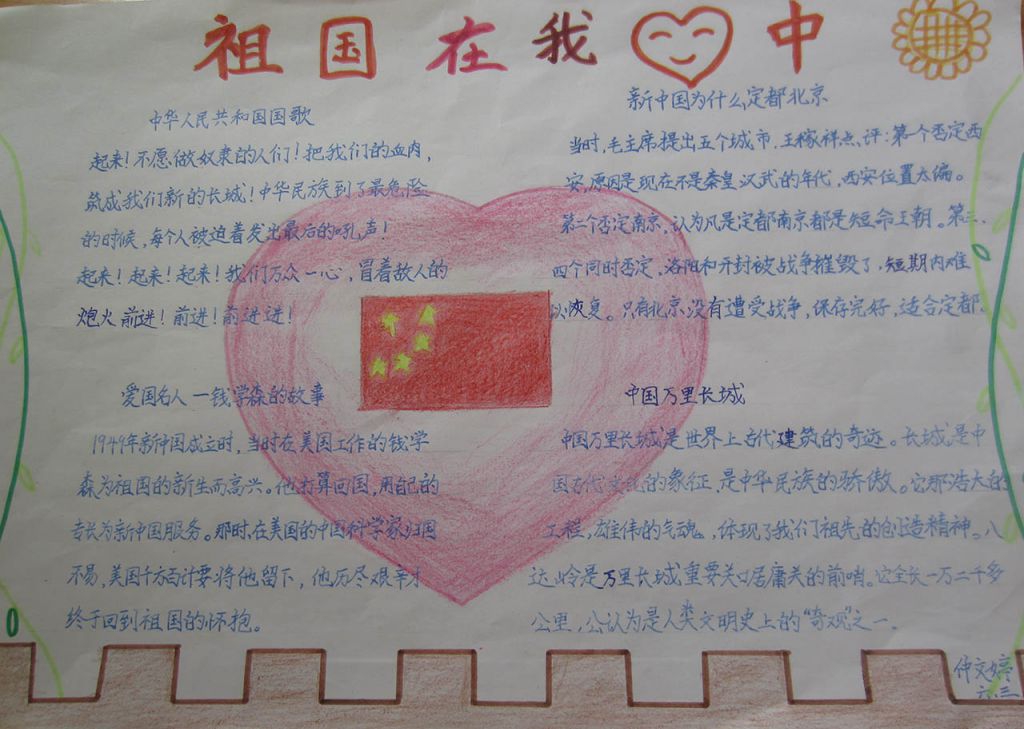 祖国在我中
中华人民共和国国歌
起来！不愿做奴隶的人们！把我们的血肉，
筑成我们新的长城！中华民族到了最危险
的时候，每个人被迫着发出最后的吼声！
起来！起来！起来！我们万众一心，冒着敌人的
炮火前进！前进！前进进！
新中国为什么定都北京
当时，毛主席提出五个城市，王稼祥点评：第一个否定西
安，原因是现在不是秦皇汉武的年代，西安位置太偏。
第二个否定南京，认为凡是定都南京都是短命王朝。第三、
四个同时否定，洛阳和开封被战争摧毁了，短期内难
以恢复。只有北京没有遭受战争，保存完好，适合定都。
爱国名人—钱学森的故事
1949年新中国成立时，当时在美国工作的钱学
森为祖国的新生而高兴。他打算回国，用自己的
专长为新中国服务。那时，在美国的中国科学家归国
不易，美国千方百计要将他留下，他历尽艰辛才
终于回到祖国的怀抱。
中国万里长城
中国万里长城是世界上古代建筑的奇迹。长城是中
国古代文化的象征，是中华民族的骄傲。它那浩大的
工程，雄伟的气魂，体现了我们祖先的创造精神。八
达岭是万里长城重要关口居庸关的前哨。它全长一万二千多
公里，公认为是人类文明史上的“奇观”之一。
仲文婷
六.三